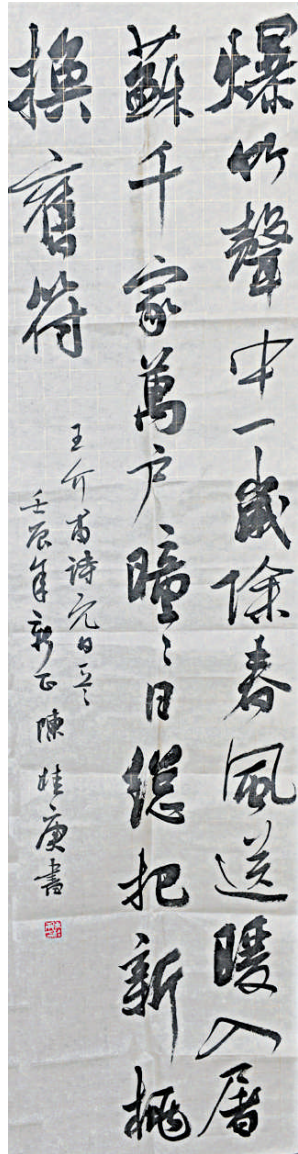 爆竹聲中一歲除春風送暖入屠
蘇千家萬户曈〻日總把新桃
換舊符
王介甫詩元日
壬辰年新正陳桂庚書